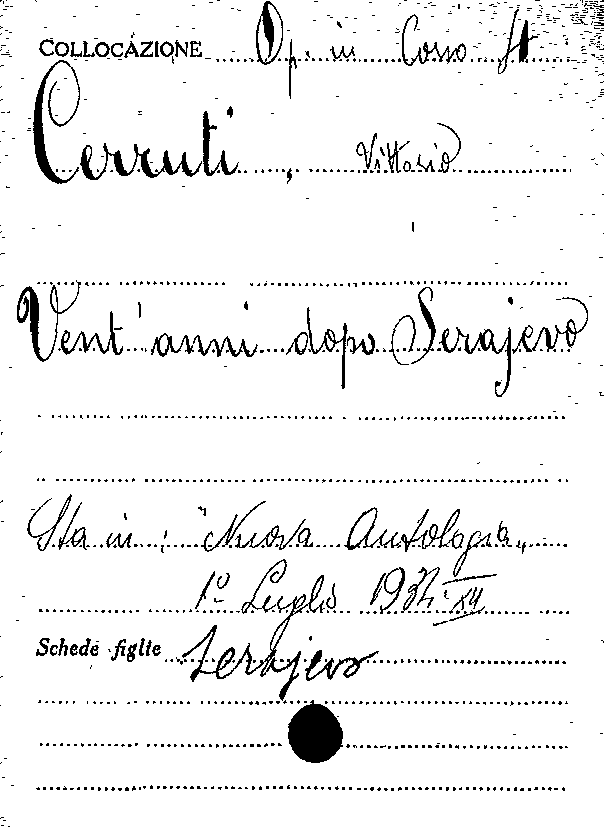 COLLOCAZIONE Op. in Corso St
Cerruti, Vittorio
Vent'anni dopo Serajevo
Sta in: "Nuova Antologia"
1º Luglio 1934-XII
Schede figlie Serajevo